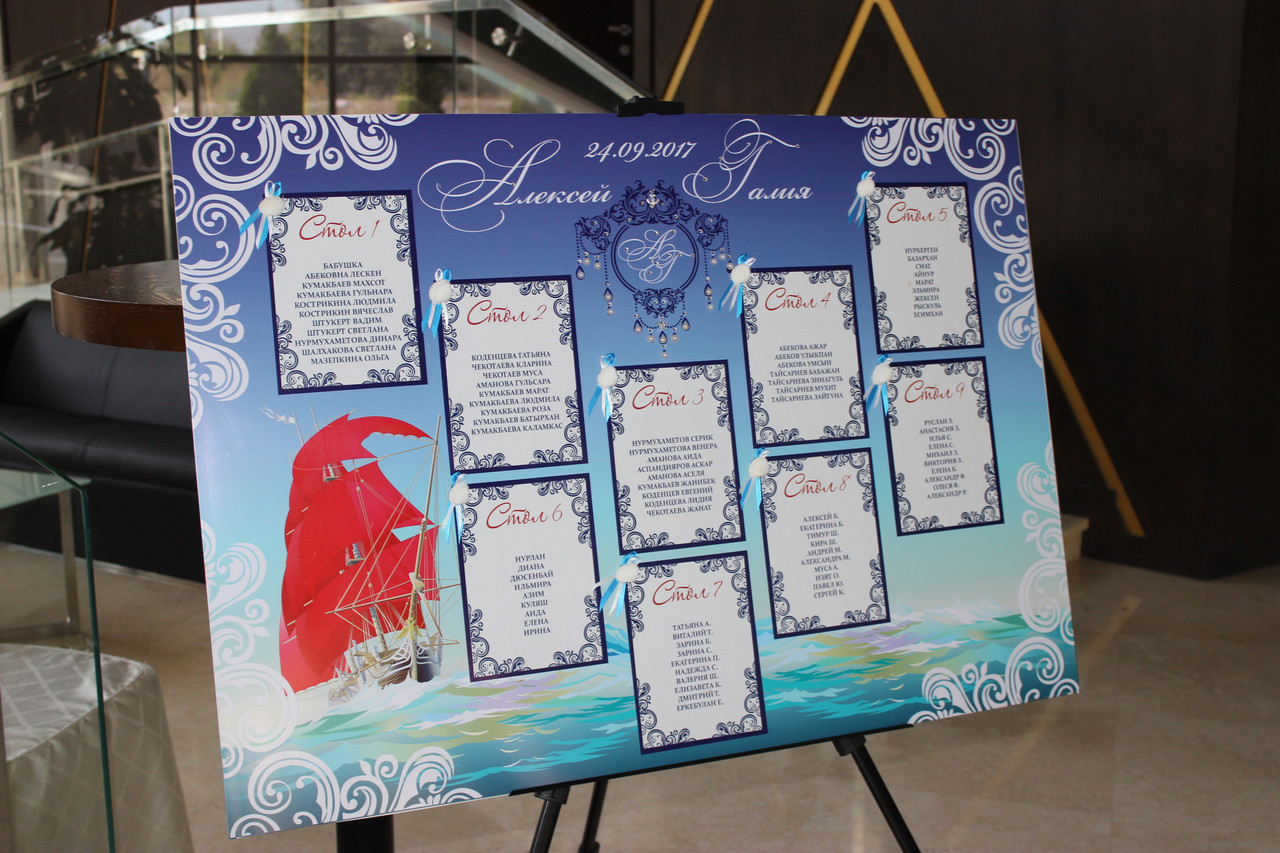 24.09.2017
Алексей
Галия
АГ
Стол 1
БАБУШКА
АБЕКОВНА ЛЕСКЕН
КУМАКБАЕВ МАХСОТ
КУМАКБАЕВА ГУЛЬНАРА
КОСТРИКИНА ЛЮДМИЛА
КОСТРИКИН ВЯЧЕСЛАВ
ШТУКЕРТ ВАДИМ
ШТУКЕРТ СВЕТЛАНА
НУРМУХАМЕТОВА ДИНАРА
ШАЛХАКОВА СВЕТЛАНА
МАЗЕПКИНА ОЛЬГА
Стол 2
КОДЕНЦЕВА ТАТЬЯНА
ЧЕКОТАЕВА КЛАРИНА
ЧЕКОТАЕВ МУСА
АМАНОВА ГУЛЬСАРА
КУМАКБАЕВ МАРАТ
КУМАКБАЕВА ЛЮДМИЛА
КУМАКБАЕВА РОЗА
КУМАКБАЕВ БАТЫРХАН
КУМАКБАЕВА КАЛАМКАС
Стол 3
НУРМУХАМЕТОВ СЕРИК
НУРМУХАМЕТОВА ВЕНЕРА
АМАНОВА АИДА
АСПАНДИЯРОВ АСКАР
АМАНОВА АСЕЛЯ
КУМАКБАЕВ ЖАНИБЕК
КОДЕНЦЕВ ЕВГЕНИЙ
КОДЕНЦЕВА ЛИДИЯ
ЧЕКОТАЕВА ЖАНАТ
Стол 4
АБЕКОВА АЖАР
АБЕКОВ УЛЫКПАН
АБЕКОВА УМСЫН
ТАЙСАРИЕВ БАБАЖАН
ТАЙСАРИЕВА ЗИНАГУЛЬ
ТАЙСАРИЕВ МУХИТ
ТАЙСАРИЕВА ЗАЙТУНА
Стол 5
НУРБЕРГЕН
БАЗАРХАН
СМАТ
АЙНУР
МАРАТ
ЭЛЬМИРА
ЖЕКСЕН
РЫСКУЛЬ
ЕСИМХАН
Стол 6
НУРЛАН
ДИАНА
ДЮСЕНБАЙ
ИЛЬМИРА
АЗИМ
КУЛЯШ
АИДА
ЕЛЕНА
ИРИНА
Стол 7
ТАТЬЯНА А.
ВИТАЛИЙ Т.
ЗАРИНА Б.
ЗАРИНА С.
ЕКАТЕРИНА П.
НАДЕЖДА С.
ВАЛЕРИЯ Ш.
ЕЛИЗАВЕТА К.
ДМИТРИЙ Т.
ЕРКЕБУЛАН Е.
Стол 8
АЛЕКСЕЙ Б.
ЕКАТЕРИНА Б.
ТИМУР Ш.
КИРА Ш.
АНДРЕЙ М.
АЛЕКСАНДРА М.
МУСА А.
ИЗЯТ О.
ПАВЕЛ Ю.
СЕРГЕЙ К.
Стол 9
РУСЛАН З.
АНАСТАСИЯ З.
ИЛЬЯ С.
ЕЛЕНА С.
МИХАИЛ З.
ВИКТОРИЯ З.
ЕЛЕНА Б.
АЛЕКСАНДР Ф.
ОЛЕСЯ Ф.
АЛЕКСАНДР Р.